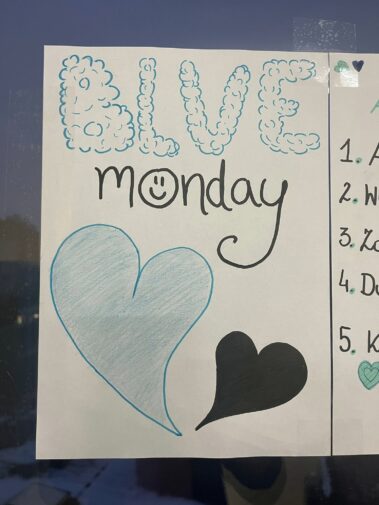 BLUE
monday
1.
2.
3.
4.
5.